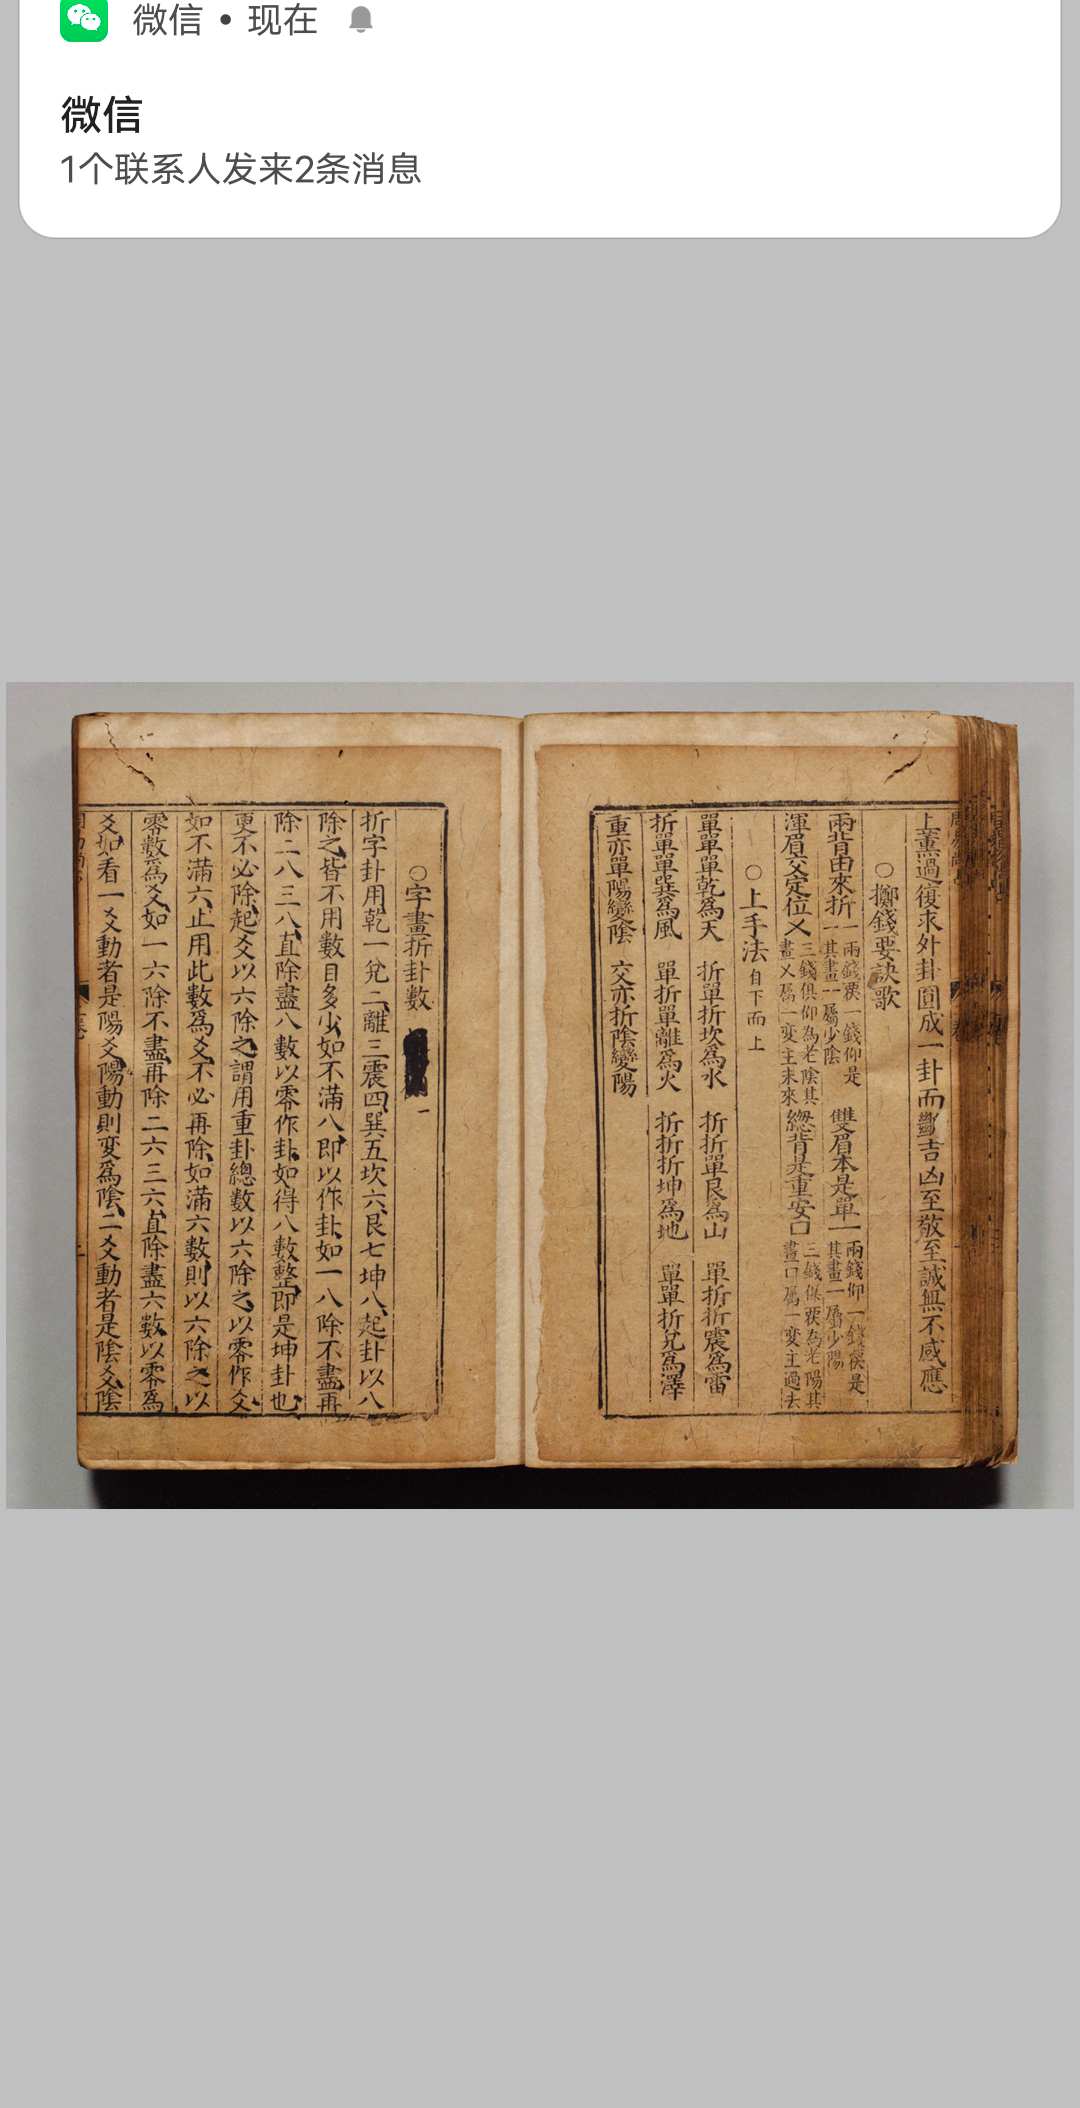 微信 • 现在
微信
1个联系人发来2条消息
上熏過復求外卦圓成一卦而斷吉凶至敬至誠無不感應
○擲錢要訣歌
兩背由來折 -- 兩錢覆一錢仰是其畫 -- 屬少陰 雙眉本是單一 兩錢仰一錢覆是其畫一屬少陽
渾眉交定位乂 三錢俱仰為老陰其畫乂屬一変主未來 總背是重安口 三錢俱覆為老陽其畫口屬一変主過去
○上手法 自下而上
單單單乾為天 折單折坎為水 折折單艮為山 單折折震為雷
折單單巽為風 單折單離為火 折折折坤為地 單單折兌為澤
重亦單陽變陰 交亦折陰變陽
○字畫折卦數 一
折字卦用乾一兌二離三震四巽五坎六艮七坤八起卦以八
除之皆不用數目多少如不滿八即以作卦如一八除不盡再
除二八三八直除盡八數以零作卦如得八數整即是坤卦也
更不必除起爻以六除之謂用重卦總數以六除之以零作爻
如不滿六止用此數為爻不必再除如滿六數則以六除之以
零數為爻如一六除不盡再除二六三六直除盡六數以零為
爻如看一爻動者是陽爻陽動則変為陰二爻動者是陰爻陰